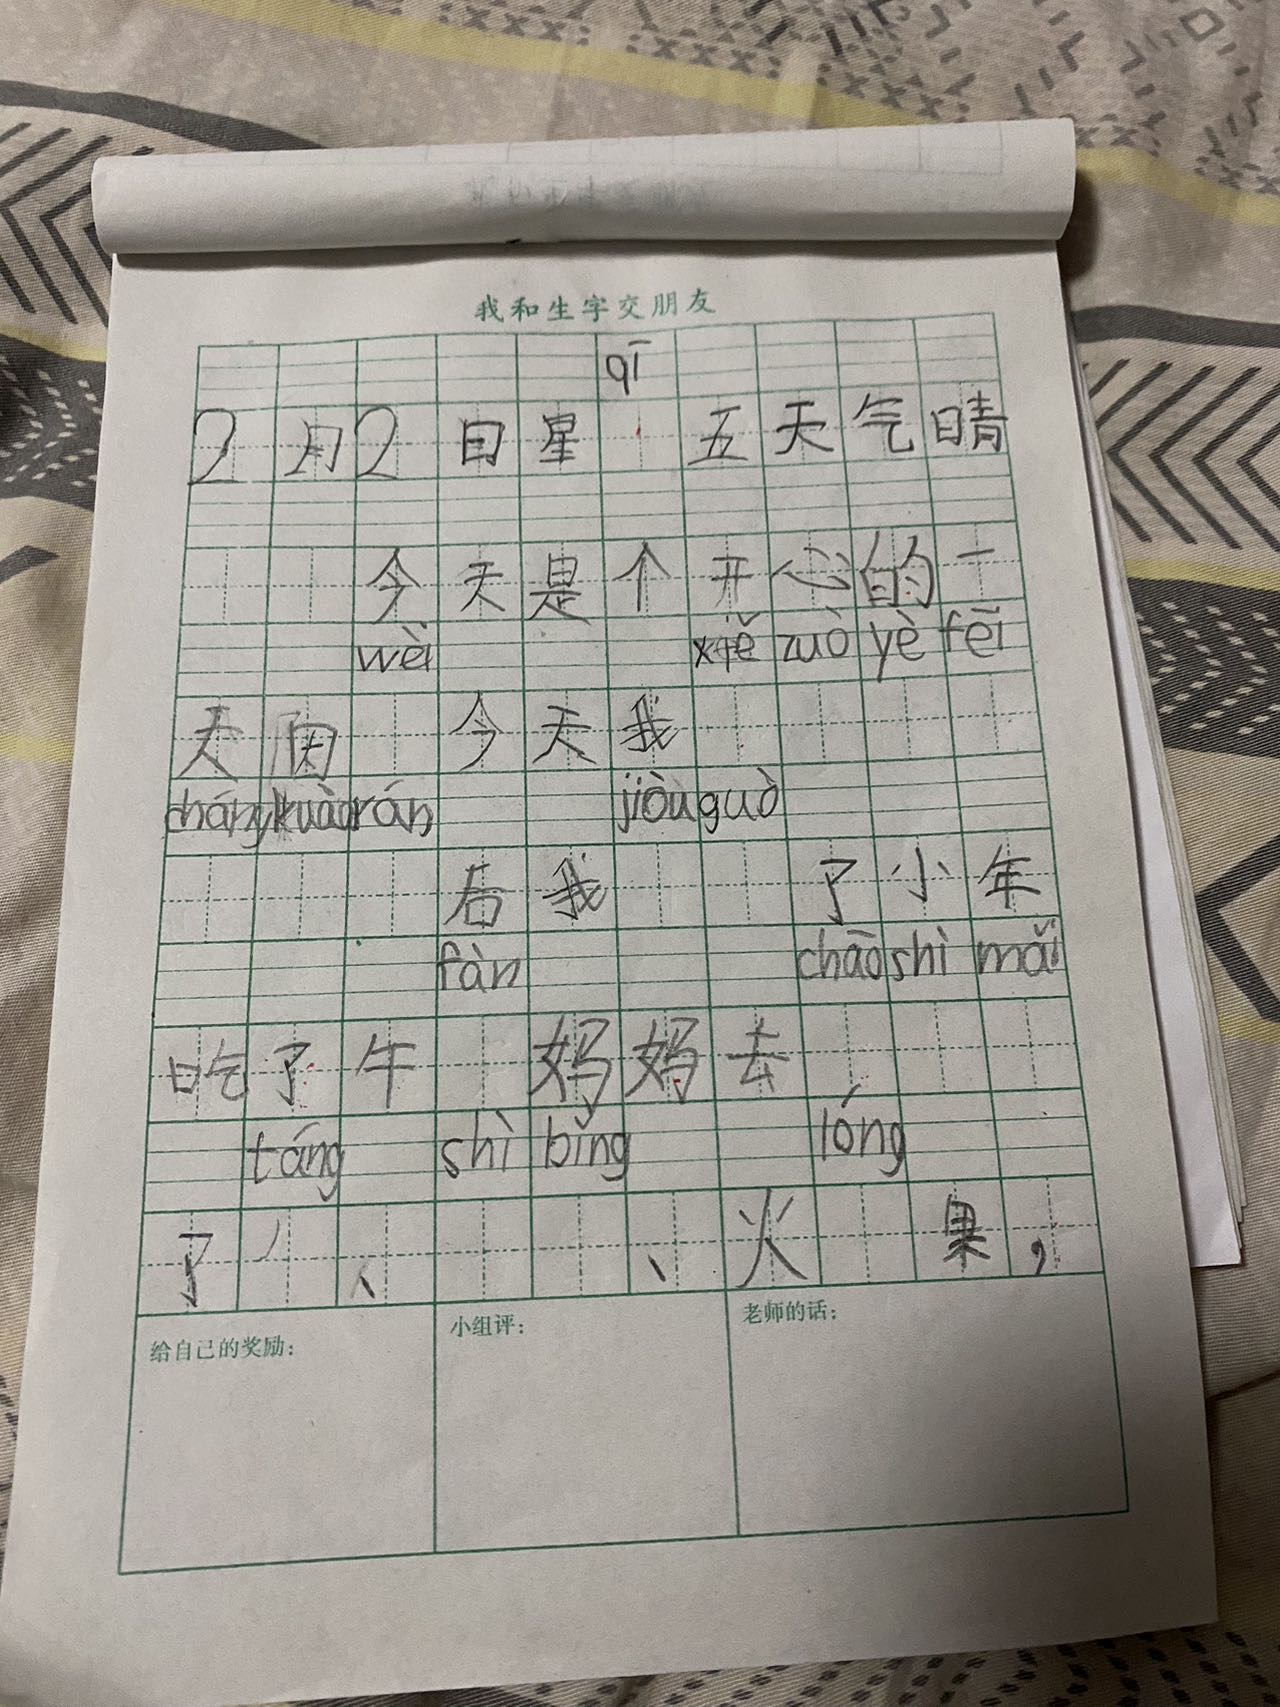 我和生字交朋友
qī
2月2日星 五天气晴
今天是个开心的一
wèi xiě zuò yè fēi
天因 今天我
cháng kuài rán jiòu guò
后我 了小年
fàn chāo shì mǎi
吃了午 妈妈去
táng shì bǐng lóng
了 、 、火 果，
给自己的奖励：
小组评：
老师的话：